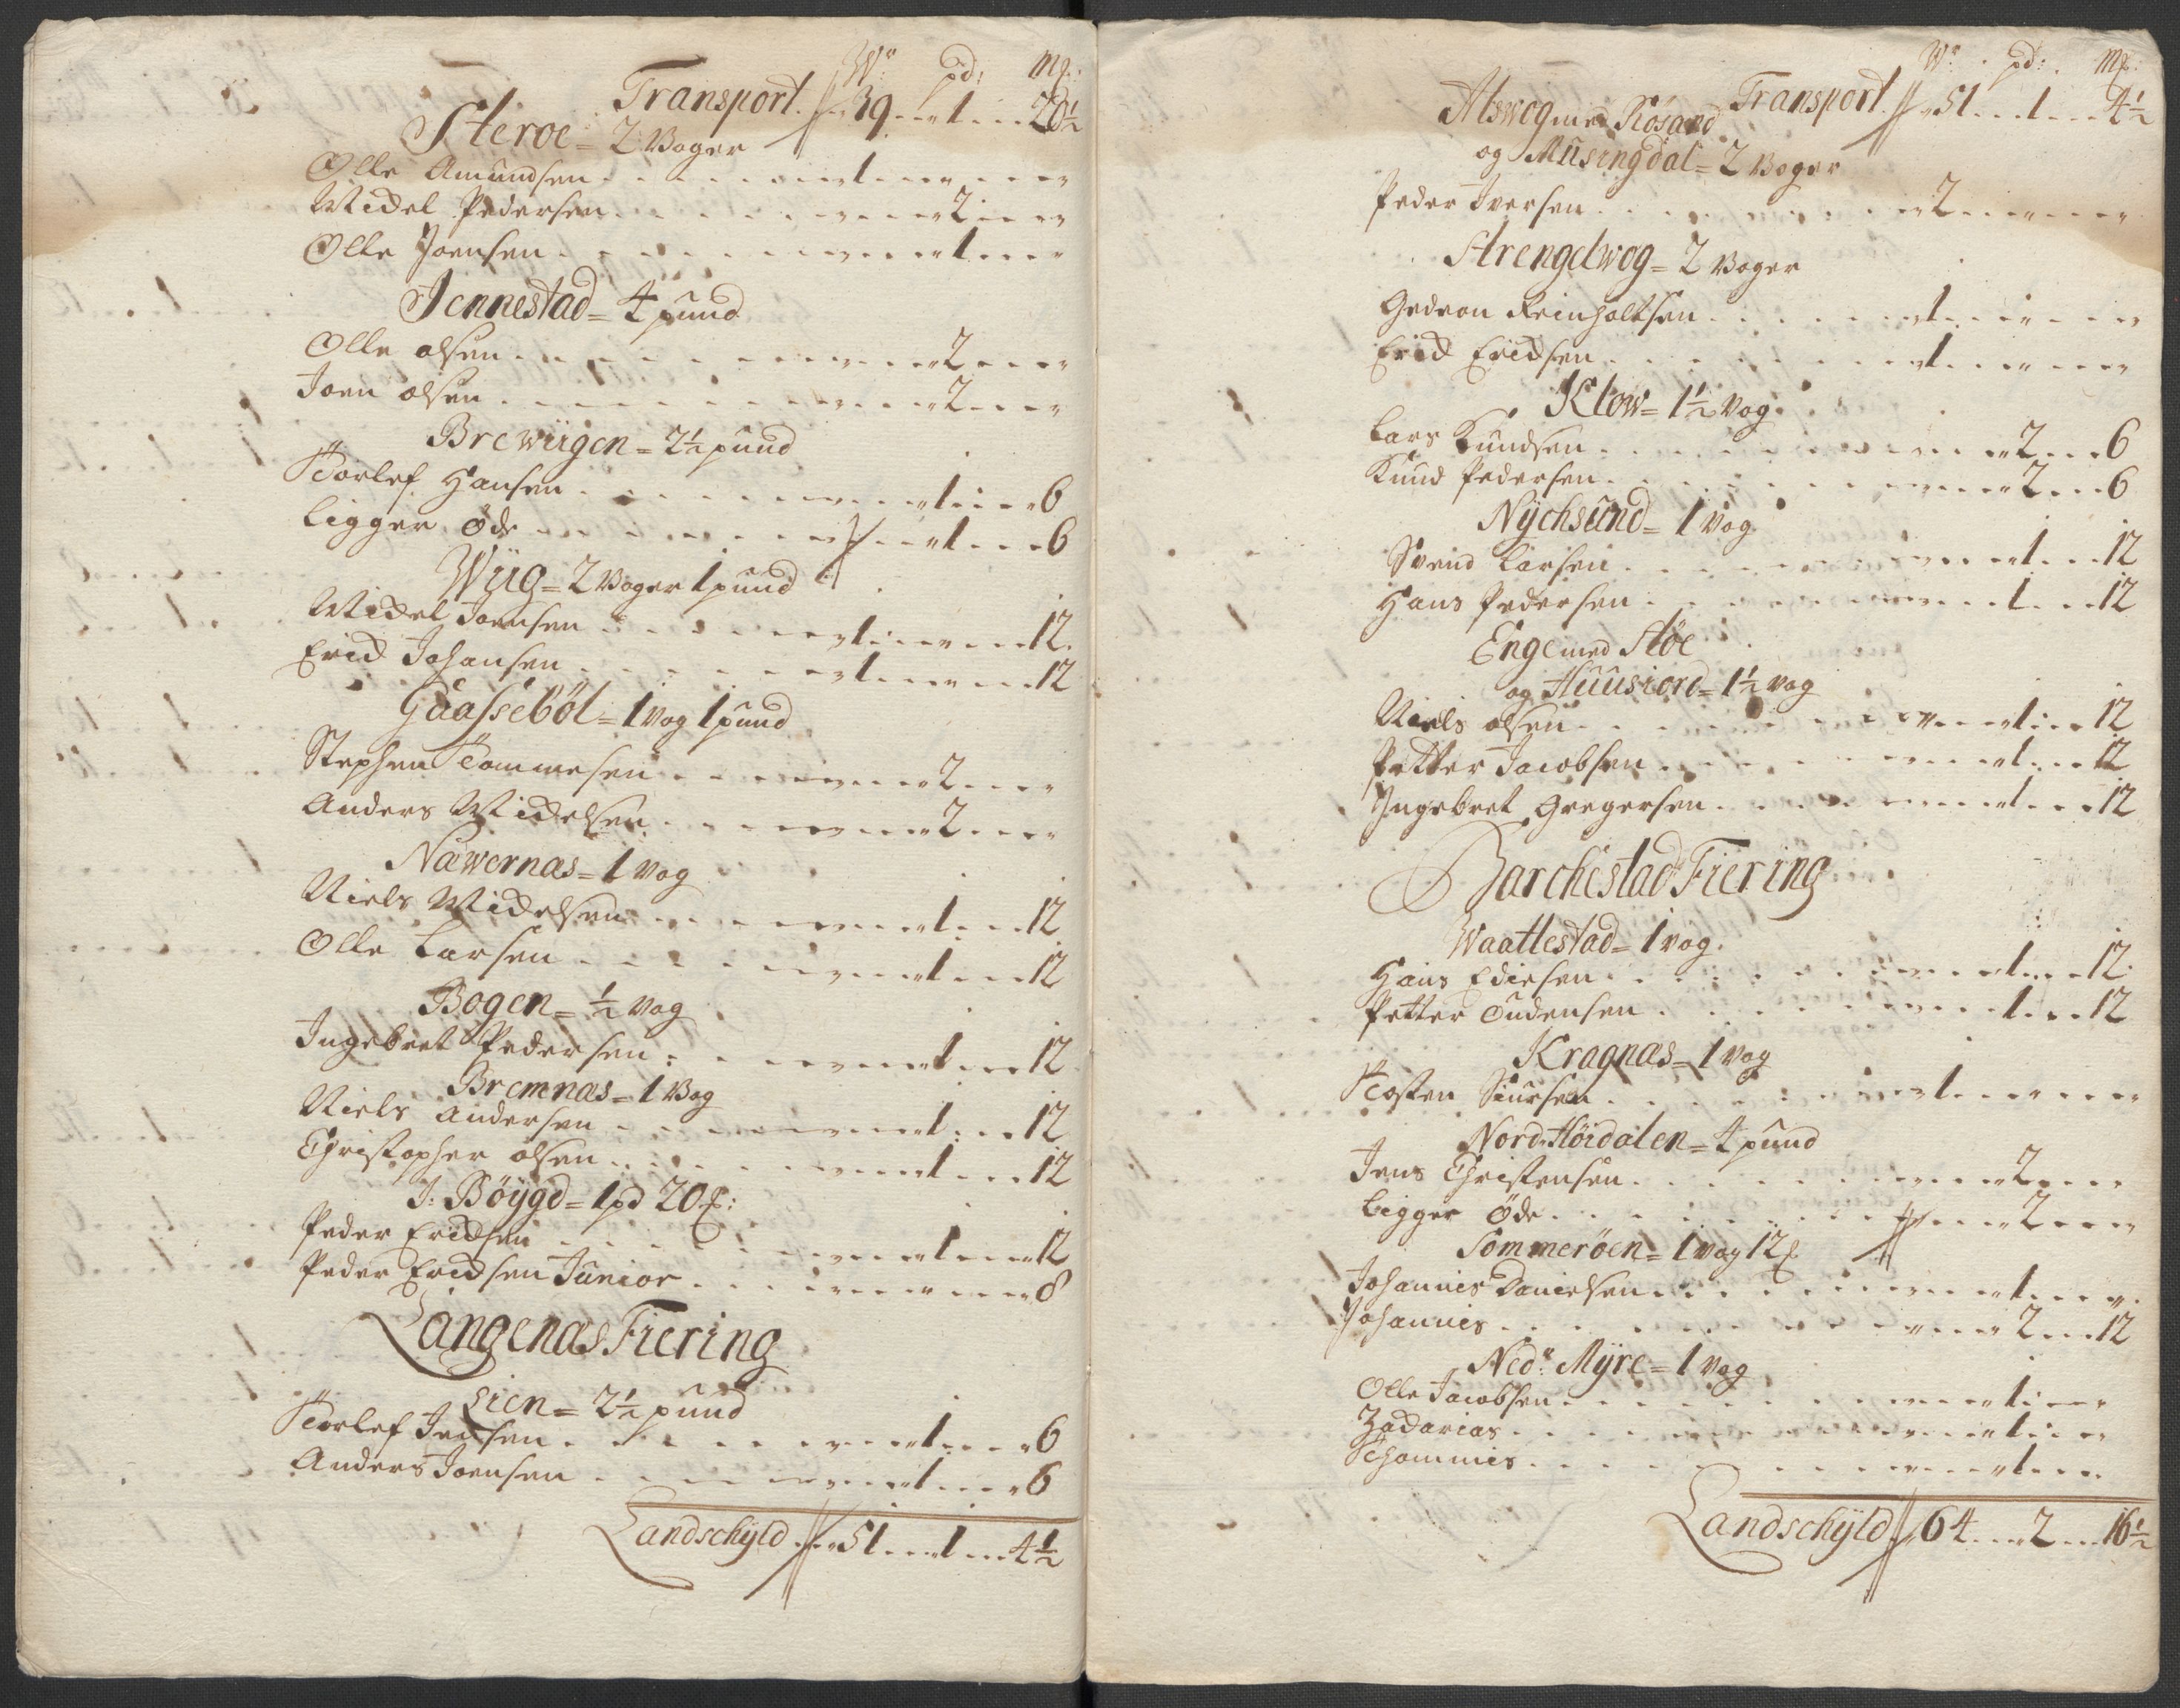 W: pd: m̸:
Transport. 39 .. 1 .. 20½
Steroe = 2 Voger
Olle Amundsen . . . 1 . . .
Michel Pedersen . . . 2 . . .
Olle Joensen . . . 1 . . .
Jennestad = 4 pund
Olle olsen . . . 2 . . .
Joen olsen . . . 2 . . .
Brewiigen = 2½ pund
Torlef Hansen . . . 1 . . . 6
Ligger øde . . . 1 . . . 6
Wiig = 2 Voger 1 pund
Michel Joensen . . . 1 . . . 12
Erich Johansen . . . 1 . . . 12
Guassebøl = 1 vog 1 pund
Stephen Tommesen . . . 2 . . .
Anders Michelsen . . . 2 . . .
Nawernæs = 1 vog
Niels Michelsen . . . 1 . . . 12
Olle Larsen . . . 1 . . . 12
Bogen = ½ vog
Ingebret Pedersen . . . 1 . . . 12
Bremnæs = 1 Vog
Niels Andersen . . . 1 . . . 12
Christopher olsen . . . 1 . . . 12
J: Böÿgd = 1 pd 20 m̸:
Peder Erichsen . . . 1 . . . 12
Peder Erichsen Junior . . . 8
Langenæs Fiering
Lien = 2½ pund
Torlef Jensen . . . 1 . . . 6
Anders Joensen . . . 1 . . . 6
Landschÿld . . 51 . . 1 . . 4½
W: pd: m̸:
Transport. 51 . . 1 . . 4½
Alswog med Røsand
og Musingdal = 2 Voger
Peder Iversen . . . 2 . . .
Strengelwog = 2 Voger
Gedeon Reinholtsen . . . 1 . . .
Erich Erichsen . . . 1 . . .
Klow = 1½ vog
Lars Knudsen . . . 2 . . . 6
Knud Pedersen . . . 2 . . . 6
Nÿchsund = 1 vog
Svend Larsen . . . 1 . . . 12
Hans Pedersen . . . 1 . . . 12
Enge med Støe
og Huusiord = 1½ vog
Niels olsen . . . 1 . . . 12
Petter Jacobsen . . . 1 . . . 12
Ingebret Gregersen . . . 1 . . . 12
Barchestad Fiering
Waattestad = 1 vog.
Hans Edisen . . . 1 . . . 12
Petter Oudensen . . . 1 . . . 12
Kragnæs = 1 vog
Tosten Siursen . . . 1 . . .
Nord Höidalen = 4 pund
Jens Christensen . . . 2 . . .
Ligger Øde . . . 2 . . .
Sommeröen = 1 vog 12 m̸
Johannis Danielsen . . . 1 . . .
Johannis . . . 2 . . . 12
Ned: Mÿre = 1 vog
Olle Jacobsen . . . 1 . . .
Zacharias . . . 1 . . .
Thommes . . . 1 . . .
Landschÿld 64 . . 2 . . 16½